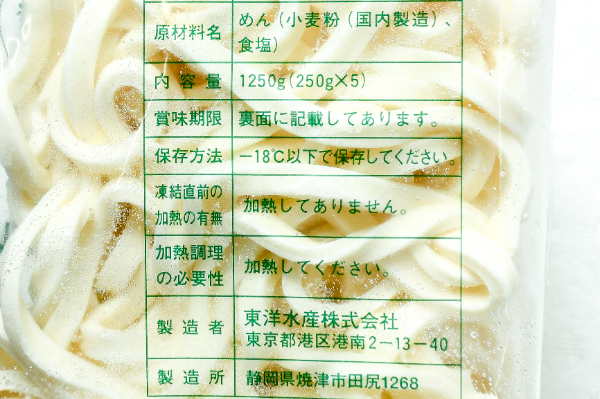 原材料名 めん（小麦粉（国内製造）、
食塩）
内容量 1250g（250g×5）
賞味期限 裏面に記載してあります。
保存方法 −18℃以下で保存してください。
凍結直前の
加熱の有無 加熱してありません。
加熱調理
の必要性 加熱してください。
製造者 東洋水産株式会社
東京都港区港南2−13−40
製造所 静岡県焼津市田尻1268